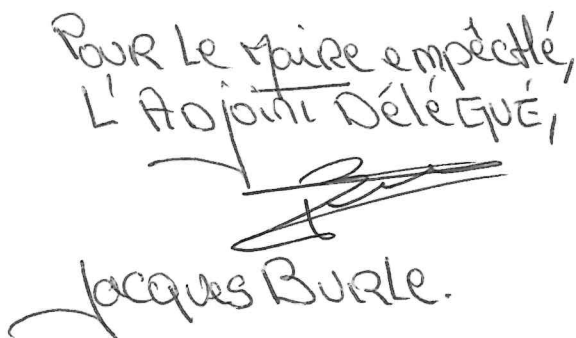 Pour le Maire empêché,
L'Adjoint Délégué,
Jacques Burle.